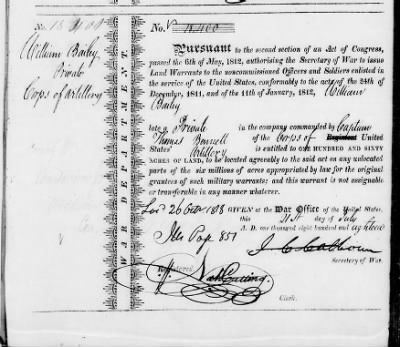 No. 18,400
William Bailey
Private
Corps of Artillery
WAR DEPARTMENT.
No. 18,400
Pursuant to the second section of an Act of Congress,
passed the 6th of May, 1812, authorising the Secretary of War to issue
Land Warrants to the noncommissioned Officers and Soldiers enlisted in
the service of the United States, conformably to the acts of the 24th of
December, 1811, and of the 11th of January, 1812, William
Baily
late a Private in the company commanded by Captain
Thomas Bennett of the Corps of Regiment United
States' Artillery is entitled to ONE HUNDRED AND SIXTY
ACRES OF LAND, to be located agreeably to the said act on any unlocated
parts of the six millions of acres appropriated by law for the original
grantees of such military warrants; and this warrant is not assignable
or transferable in any manner whatever.
26 Oct 1818 GIVEN at the War Office of the United States,
this 21st day of July
A. D. one thousand eight hundred and eighteen
Ills Page 851
J. C. Calhoun
Secretary of War.
Registered Nath Cutting
Clerk.